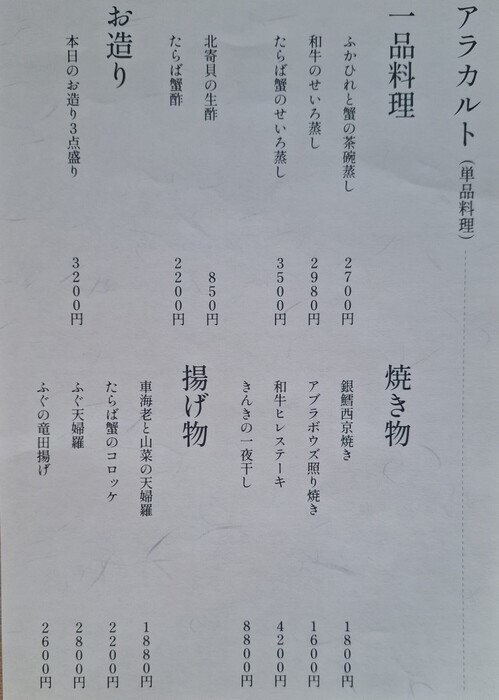 アラカルト（単品料理）
一品料理
ふかひれと蟹の茶碗蒸し 2700円
和牛のせいろ蒸し 2980円
たらば蟹のせいろ蒸し 3500円
北寄貝の生酢 850円
たらば蟹酢 2200円
お造り
本日のお造り3点盛り 3200円
焼き物
銀鱈西京焼き 1800円
アブラボウズ照り焼き 1600円
和牛ヒレステーキ 4200円
きんきの一夜干し 8800円
揚げ物
車海老と山菜の天婦羅 1880円
たらば蟹のコロッケ 2200円
ふぐ天婦羅 2800円
ふぐの竜田揚げ 2600円